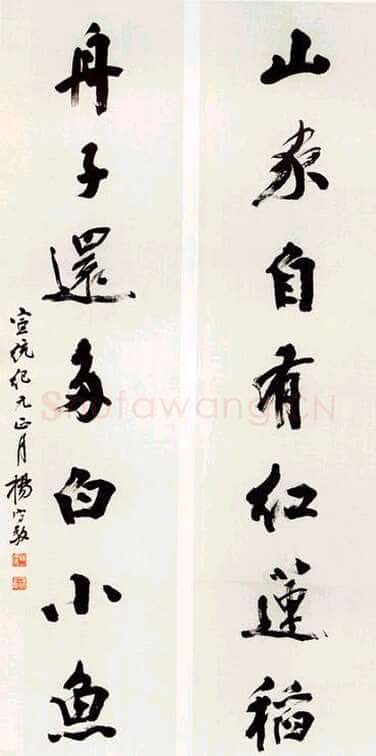 山家自有红莲稻
舟子還多白小魚
宣统纪元正月楊守敬
Shufawang.CN